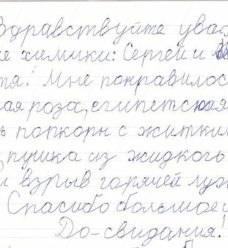 Здравствуйте ува
е химики: Сергей и
тя! Мне понравилос
ная роза, египетская
ь попкорн с житким
пушка из жидкого
и взрыв горячей лу
Спасибо большое!
До-свидания!